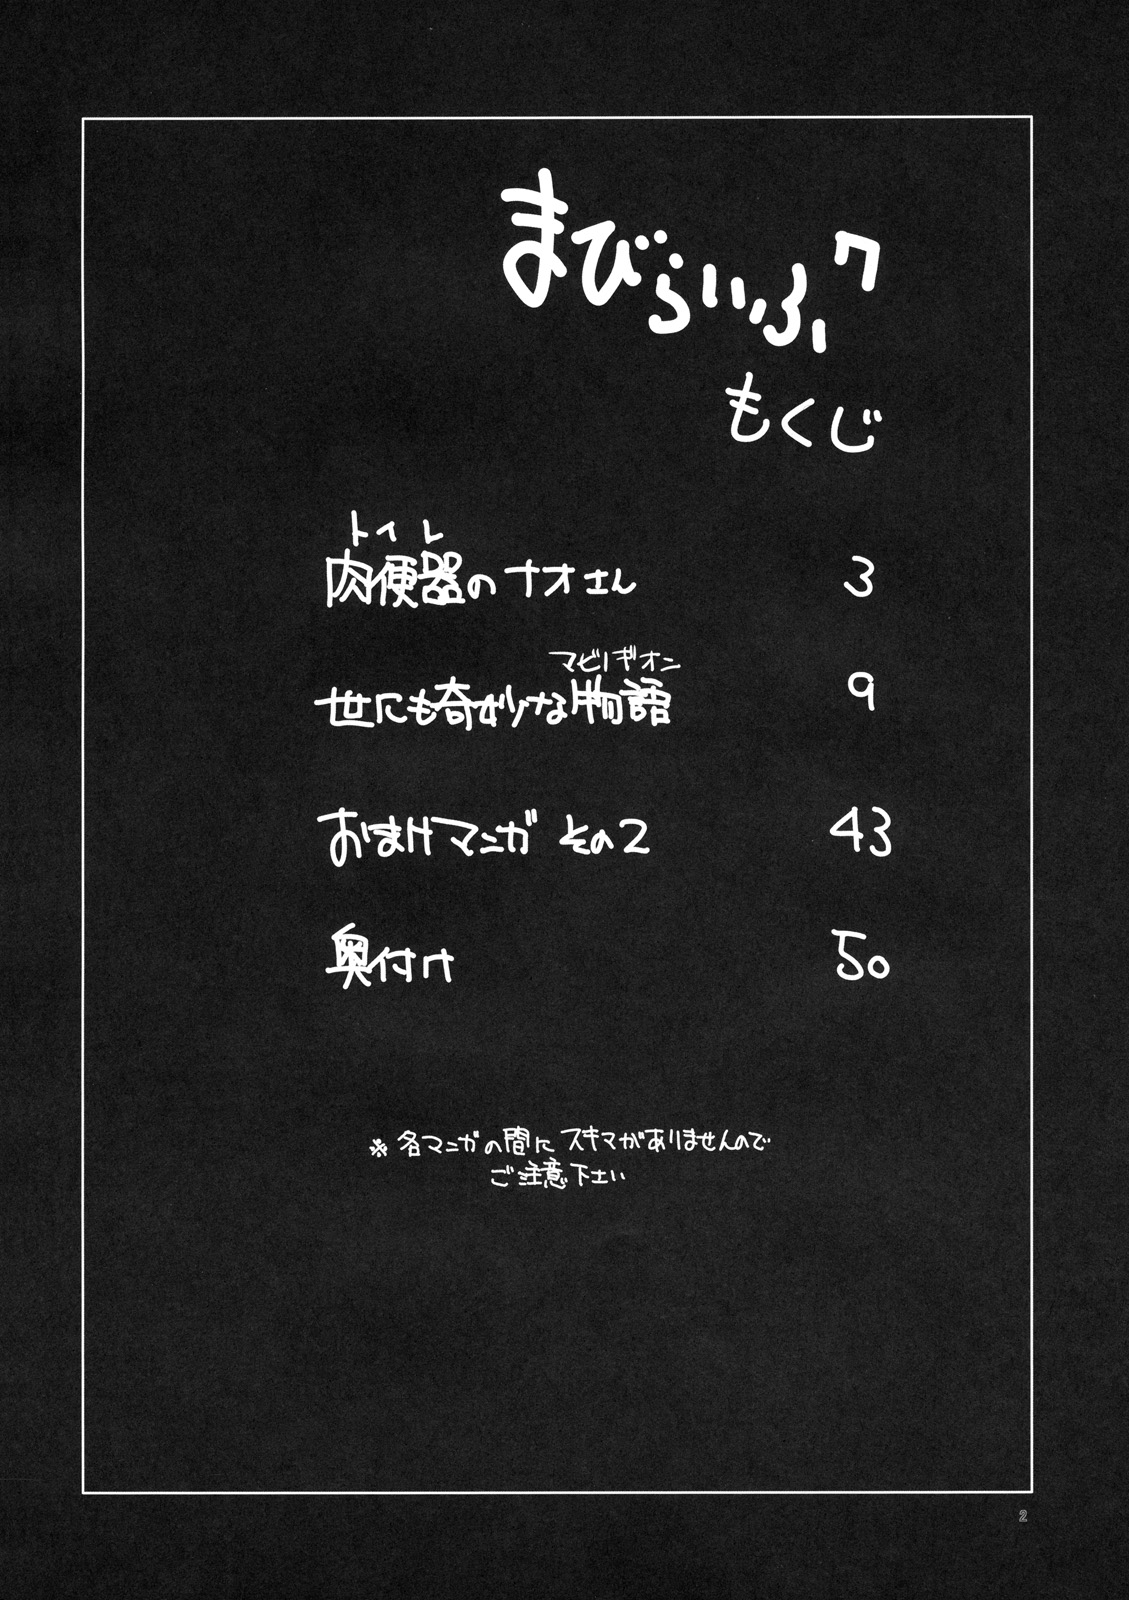 まびらいふ7
もくじ
トイレ
肉便器のナオさん 3
マビノギオン
世にも奇妙な物語 9
おまけマンガ その2 43
奥付け 50
※ 各マンガの間に スキマがありませんので
ご注意下さい
2